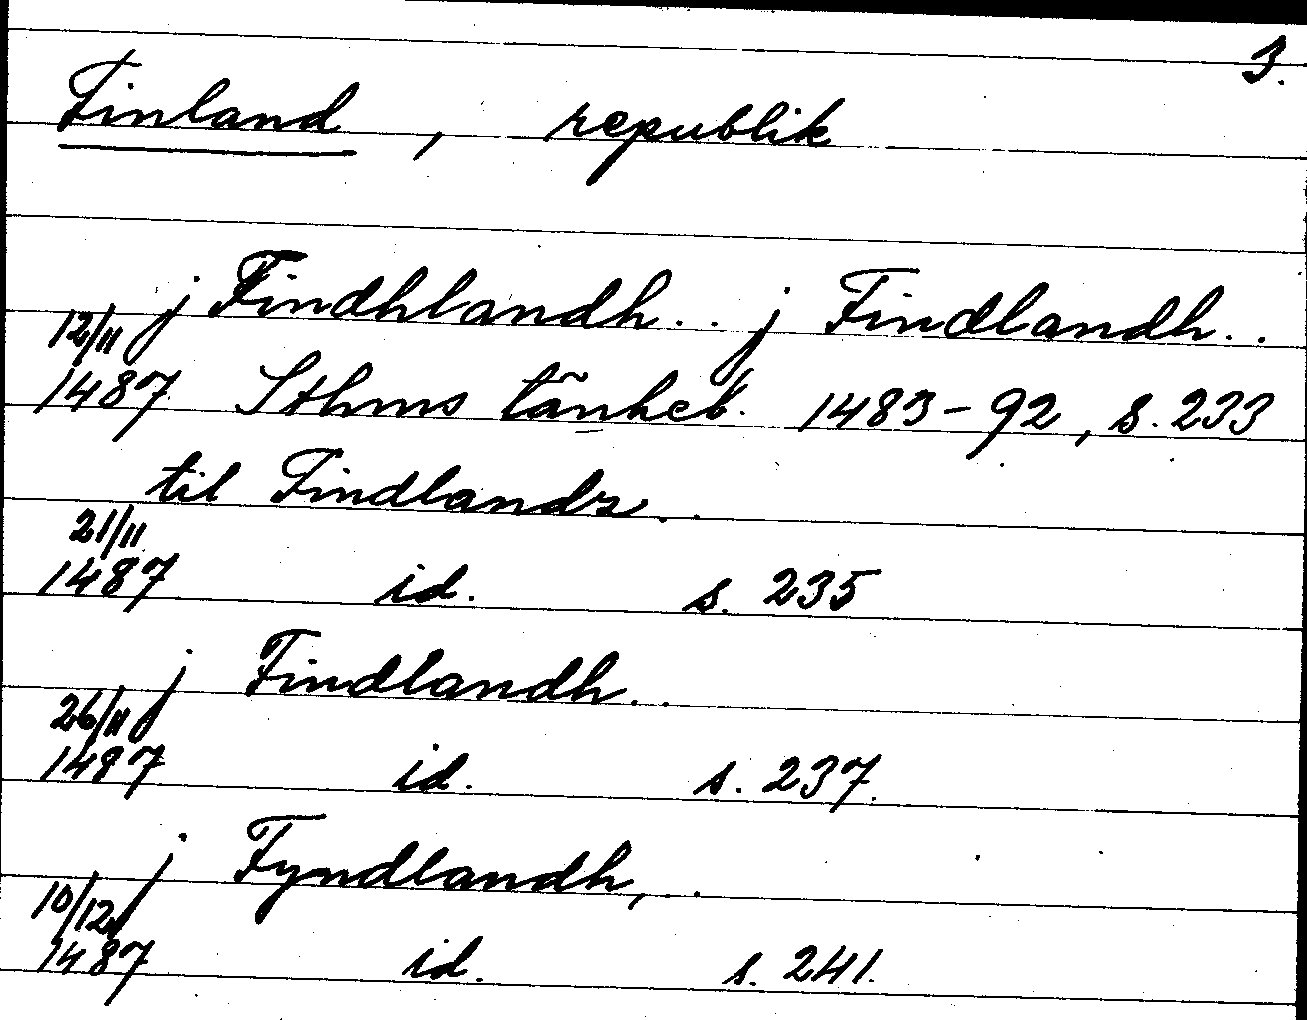 3.
Finland, republik
j Findhlandh.. j Findlandh..
12/11
1487 Sthms tänkeb. 1483-92, s. 233
til Findlandz..
21/11
1487 id. s. 235
j Findlandh..
26/11
1487 id. s. 237.
j Fyndlandh, .
10/12
1487 id. s. 241.